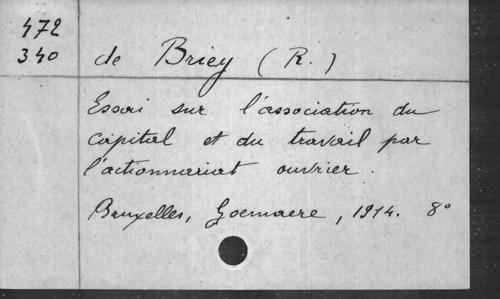 472
340
de Briey (R.)
Essai sur l'association du
capital et du travail par
l'actionnariat ouvrier.
Bruxelles, Goemaere, 1914. 8°